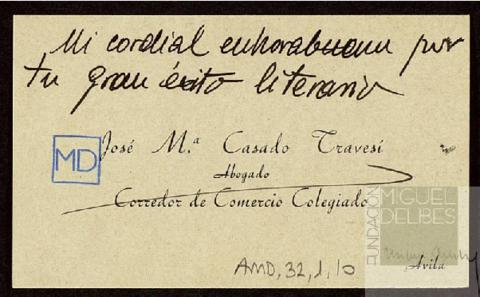 Mi cordial enhorabuena por
tu gran éxito literario
MD
José M.ª Casado Travesí
Abogado
Corredor de Comercio Colegiado
FUNDACIÓN
MIGUEL
DELIBES
Avila
AMD, 32, 1, 10